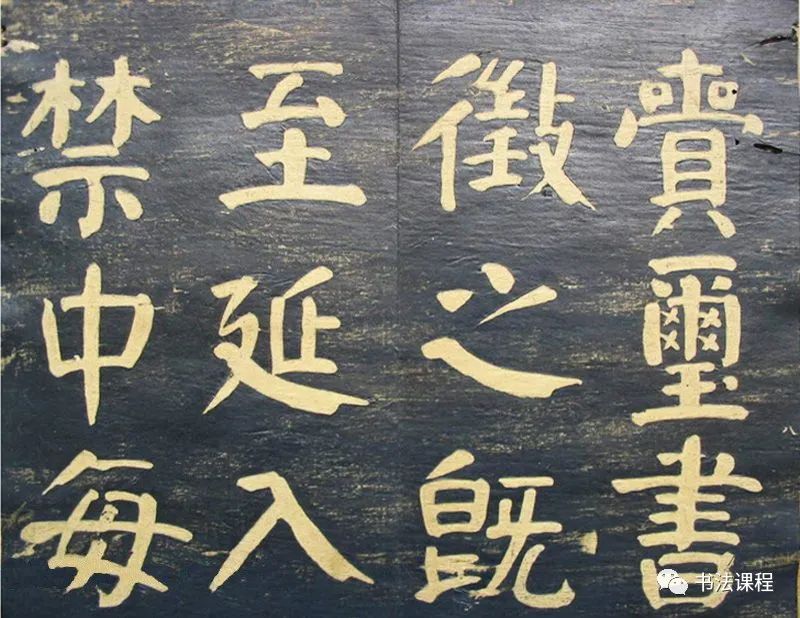 賷璽書
徵之既
至延入
禁中每
八
书法课程